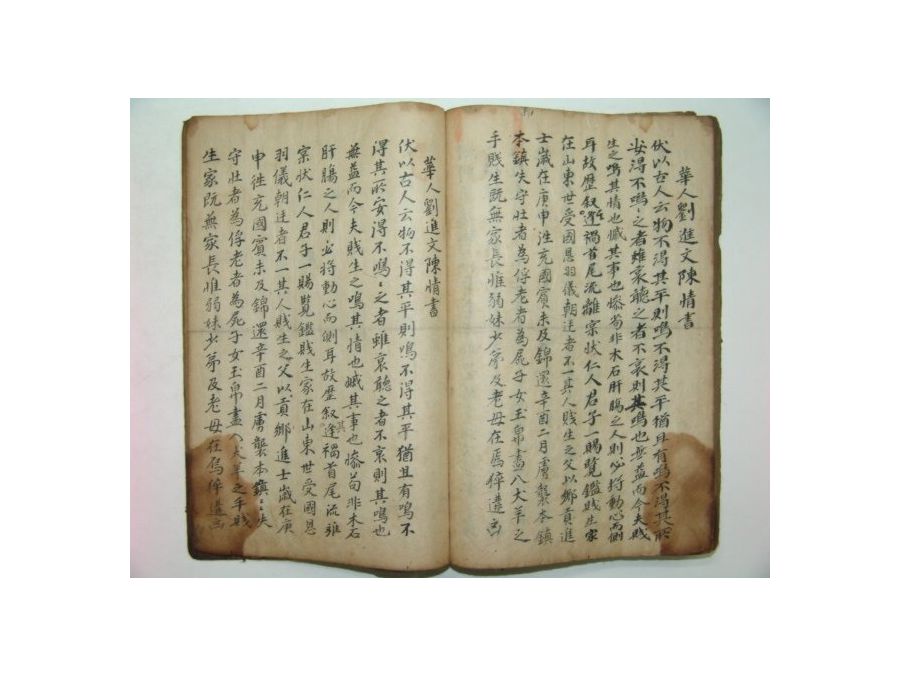 華人劉進文陳情書
伏以古人云物不得其平則鳴不得其平猶且有鳴不得其所
安得不鳴〻之者雖哀聽之者不哀則其鳴也無益而今夫賤
生之鳴其情也慽其事也慘苟非木石肝膓之人則必將動心而側
耳故歷叙逢禍首尾流離宗状仁人君子一賜覽鑑賤生家
在山東世受國恩羽儀朝廷者不一其人賤生之父以鄉貢進
士歲在庚申徃充國賓未及錦還辛酉二月虜襲本鎮
本鎮失守壮者為俘老者為屍子女玉帛盡入犬羊之
手賤生既無家長惟弱妹少弟及老母在焉倅遑
華人劉進文陳情書
伏以古人云物不得其平則鳴不得其平猶且有鳴不
得其所安得不鳴〻之者雖哀聽之者不哀則其鳴也
無益而今夫賤生之鳴其情也慽其事也慘苟非木石
肝膓之人則必將動心而側耳故歷叙其逢禍首尾流離
宗状仁人君子一賜覽鑑賤生家在山東世受國恩
羽儀朝廷者不一其人賤生之父以貢鄉進士歲在庚
申徃充國賓未及錦還辛酉二月虜襲本鎮〻失
守壮者為俘老者為屍子女玉帛盡入犬羊之手賤
生家既無家長惟弱妹少弟及老母在焉倅遑